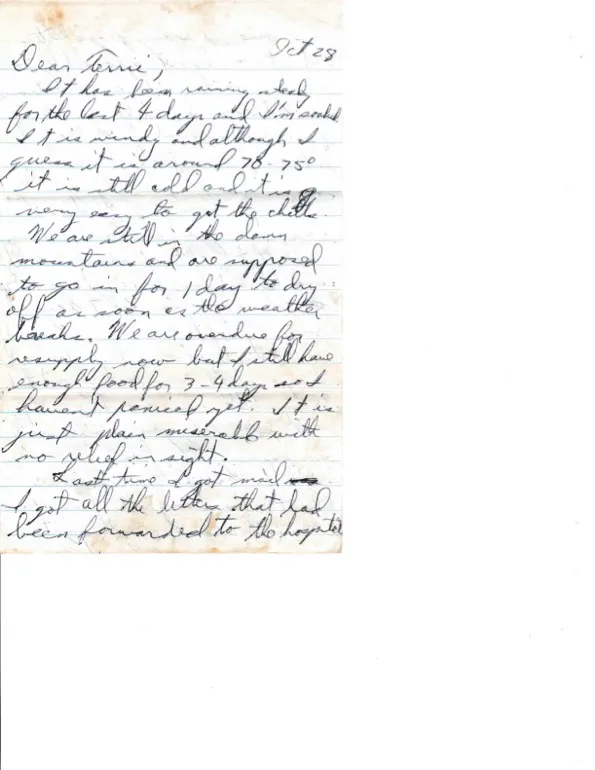 Oct 28
Dear Terrie,
It has been raining steady
for the last 4 days and I'm soaked.
It is windy and although I
guess it is around 70-75°
it is still cold and it is
very easy to get the chills.
We are still in the damn
mountains and are supposed
to go in for 1 day to dry
off as soon as the weather
breaks. We are overdue for
resupply now but I still have
enough food for 3-4 days so I
havent paniced yet. It is
just plain miserable with
no relief in sight.
Last time I got mail
I got all the letters that had
been forwarded to the hospital